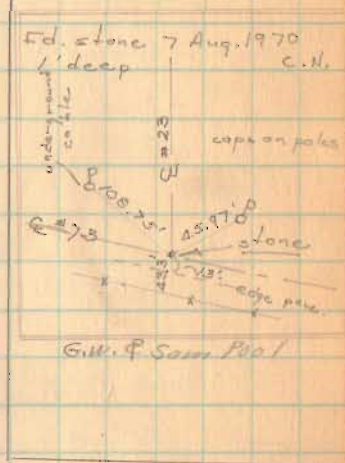 Fd. stone 7 Aug. 1970
1' deep C.N.
underground cable
℄ #23
caps on poles
108.75'
45.97'
℄ #73
stone
43.3'
edge pave.
G.W. & Sam Pool